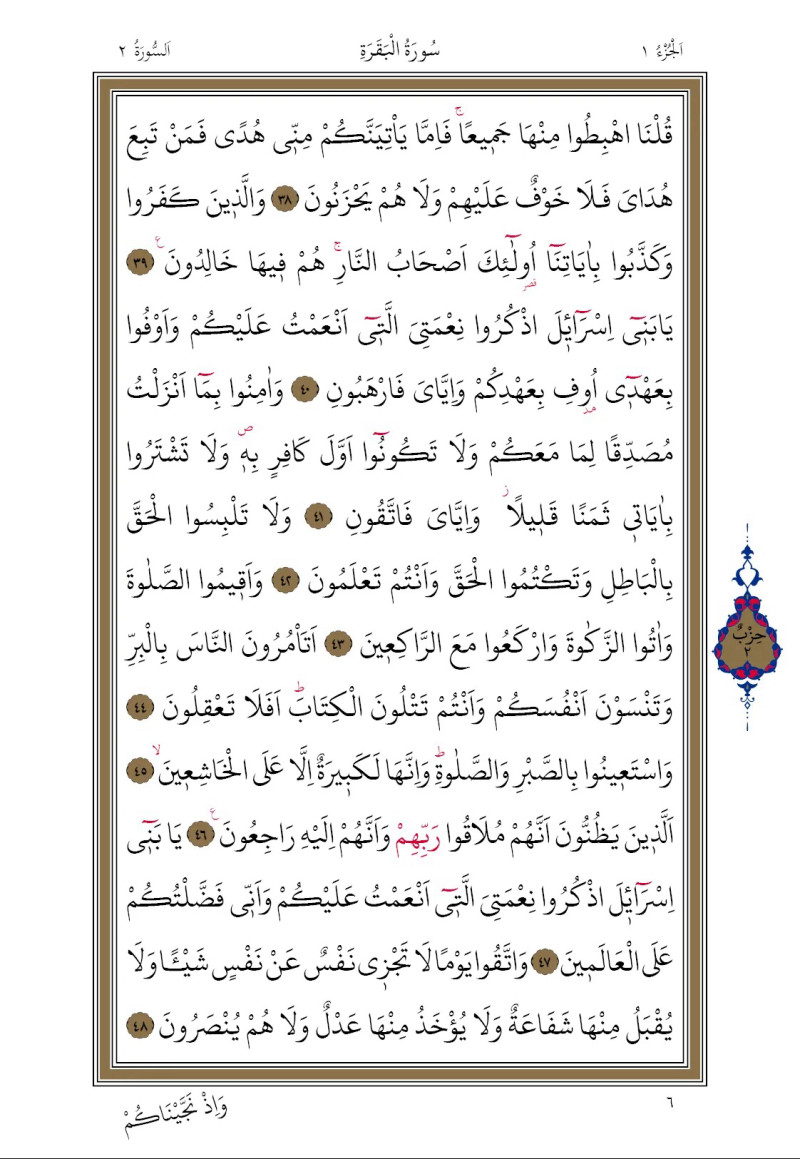 اَلْجُزْءُ ١
سُورَةُ الْبَقَرَةِ
اَلسُّورَةُ ٢
قُلْنَا اهْبِطُوا مِنْهَا جَم۪يعًاۚ فَاِمَّا يَأْتِيَنَّكُمْ مِنّ۪ى هُدًى فَمَنْ تَبِعَ
هُدَاىَ فَلَا خَوْفٌ عَلَيْهِمْ وَلَا هُمْ يَحْزَنُونَ ٣٨ وَالَّذ۪ينَ كَفَرُوا
وَكَذَّبُوا بِاٰيَاتِنَٓا اُو۬لٰٓئِكَ اَصْحَابُ النَّارِۚ هُمْ ف۪يهَا خَالِدُونَ۟ ٣٩
يَابَن۪ٓى اِسْرَٓائ۪لَ اذْكُرُوا نِعْمَتِىَ الَّت۪ٓى اَنْعَمْتُ عَلَيْكُمْ وَاَوْفُوا
بِعَهْد۪ٓى اُو۫فِ بِعَهْدِكُمْ وَاِيَّاىَ فَارْهَبُونِ ٤٠ وَاٰمِنُوا بِمَٓا اَنْزَلْتُ
مُصَدِّقًا لِمَا مَعَكُمْ وَلَا تَكُونُٓوا اَوَّلَ كَافِرٍ بِه۪ۖ وَلَا تَشْتَرُوا
بِاٰيَات۪ى ثَمَنًا قَل۪يلًاۘ وَاِيَّاىَ فَاتَّقُونِ ٤١ وَلَا تَلْبِسُوا الْحَقَّ
بِالْبَاطِلِ وَتَكْتُمُوا الْحَقَّ وَاَنْتُمْ تَعْلَمُونَ ٤٢ وَاَق۪يمُوا الصَّلٰوةَ
وَاٰتُوا الزَّكٰوةَ وَارْكَعُوا مَعَ الرَّاكِع۪ينَ ٤٣ اَتَأْمُرُونَ النَّاسَ بِالْبِرِّ
وَتَنْسَوْنَ اَنْفُسَكُمْ وَاَنْتُمْ تَتْلُونَ الْكِتَابَۜ اَفَلَا تَعْقِلُونَ ٤٤
وَاسْتَع۪ينُوا بِالصَّبْرِ وَالصَّلٰوةِۜ وَاِنَّهَا لَكَب۪يرَةٌ اِلَّا عَلَى الْخَاشِع۪ينَۙ ٤٥
اَلَّذ۪ينَ يَظُنُّونَ اَنَّهُمْ مُلَاقُوا رَبِّهِمْ وَاَنَّهُمْ اِلَيْهِ رَاجِعُونَ۟ ٤٦ يَا بَن۪ٓى
اِسْرَٓائ۪لَ اذْكُرُوا نِعْمَتِىَ الَّت۪ٓى اَنْعَمْتُ عَلَيْكُمْ وَاَنّ۪ى فَضَّلْتُكُمْ
عَلَى الْعَالَم۪ينَ ٤٧ وَاتَّقُوا يَوْمًا لَا تَجْز۪ى نَفْسٌ عَنْ نَفْسٍ شَيْـًٔا وَلَا
يُقْبَلُ مِنْهَا شَفَاعَةٌ وَلَا يُؤْخَذُ مِنْهَا عَدْلٌ وَلَا هُمْ يُنْصَرُونَ ٤٨
حِزْبٌ
٢
٦
وَاِذْ نَجَّيْنَاكُمْ